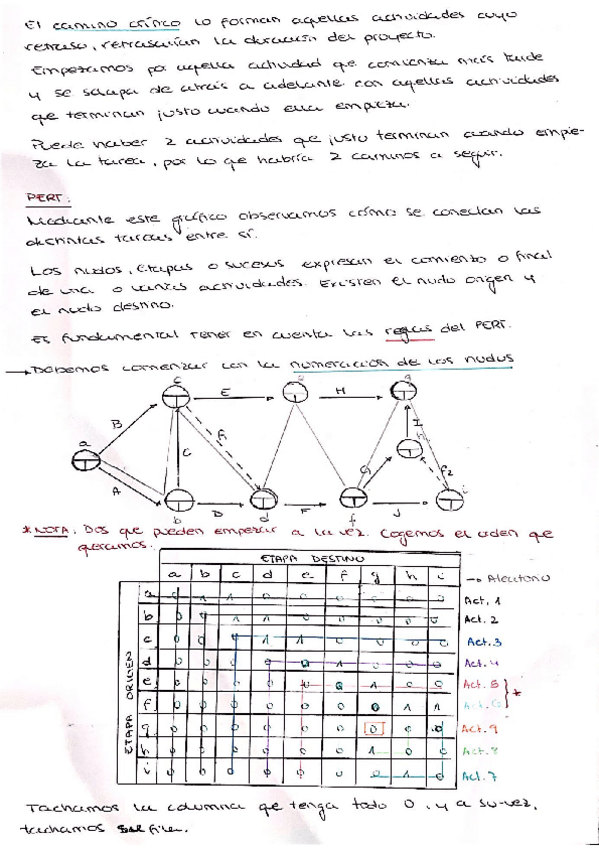 El camino crítico lo forman aquellas actividades cuyo
retraso, retrasarían la duración del proyecto.
Empezamos por aquella actividad que comienza más tarde
y se salapa de atrás a adelante con aquellas actividades
que terminan justo cuando ella empieza.
Puede haber 2 actividades que justo terminan cuando empie-
za la tarea, por lo que habría 2 caminos a seguir.
PERT:
Mediante este gráfico observamos cómo se conectan las
distintas tareas entre sí.
Los nudos, etapas o sucesos expresan el comienzo o final
de una o varias actividades. Existen el nudo origen y
el nudo destino.
Es fundamental tener en cuenta las reglas del PERT.
→ Debemos comenzar con la numeración de los nudos
c E e H g
B F1 C I h
a G F2
A b D d F f J i
* NOTA: Dos que pueden empezar a la vez. Cogemos el orden que
queramos.
ETAPA DESTINO
a b c d e f g h i → Aleatorio
ETAPA ORIGEN
a 0 1 1 0 0 0 0 0 0 Act. 1
b 0 0 1 1 0 0 0 0 0 Act. 2
c 0 0 0 1 1 0 0 0 0 Act. 3
d 0 0 0 0 0 1 0 0 0 Act. 4
e 0 0 0 0 0 0 1 0 0 Act. 5
f 0 0 0 0 0 0 0 1 1 Act. 6 *
g 0 0 0 0 0 0 0 0 0 Act. 9
h 0 0 0 0 0 0 1 0 0 Act. 8
i 0 0 0 0 0 0 0 1 0 Act. 7
Tachamos la columna que tenga todo 0, y a su vez,
tachamos fila.